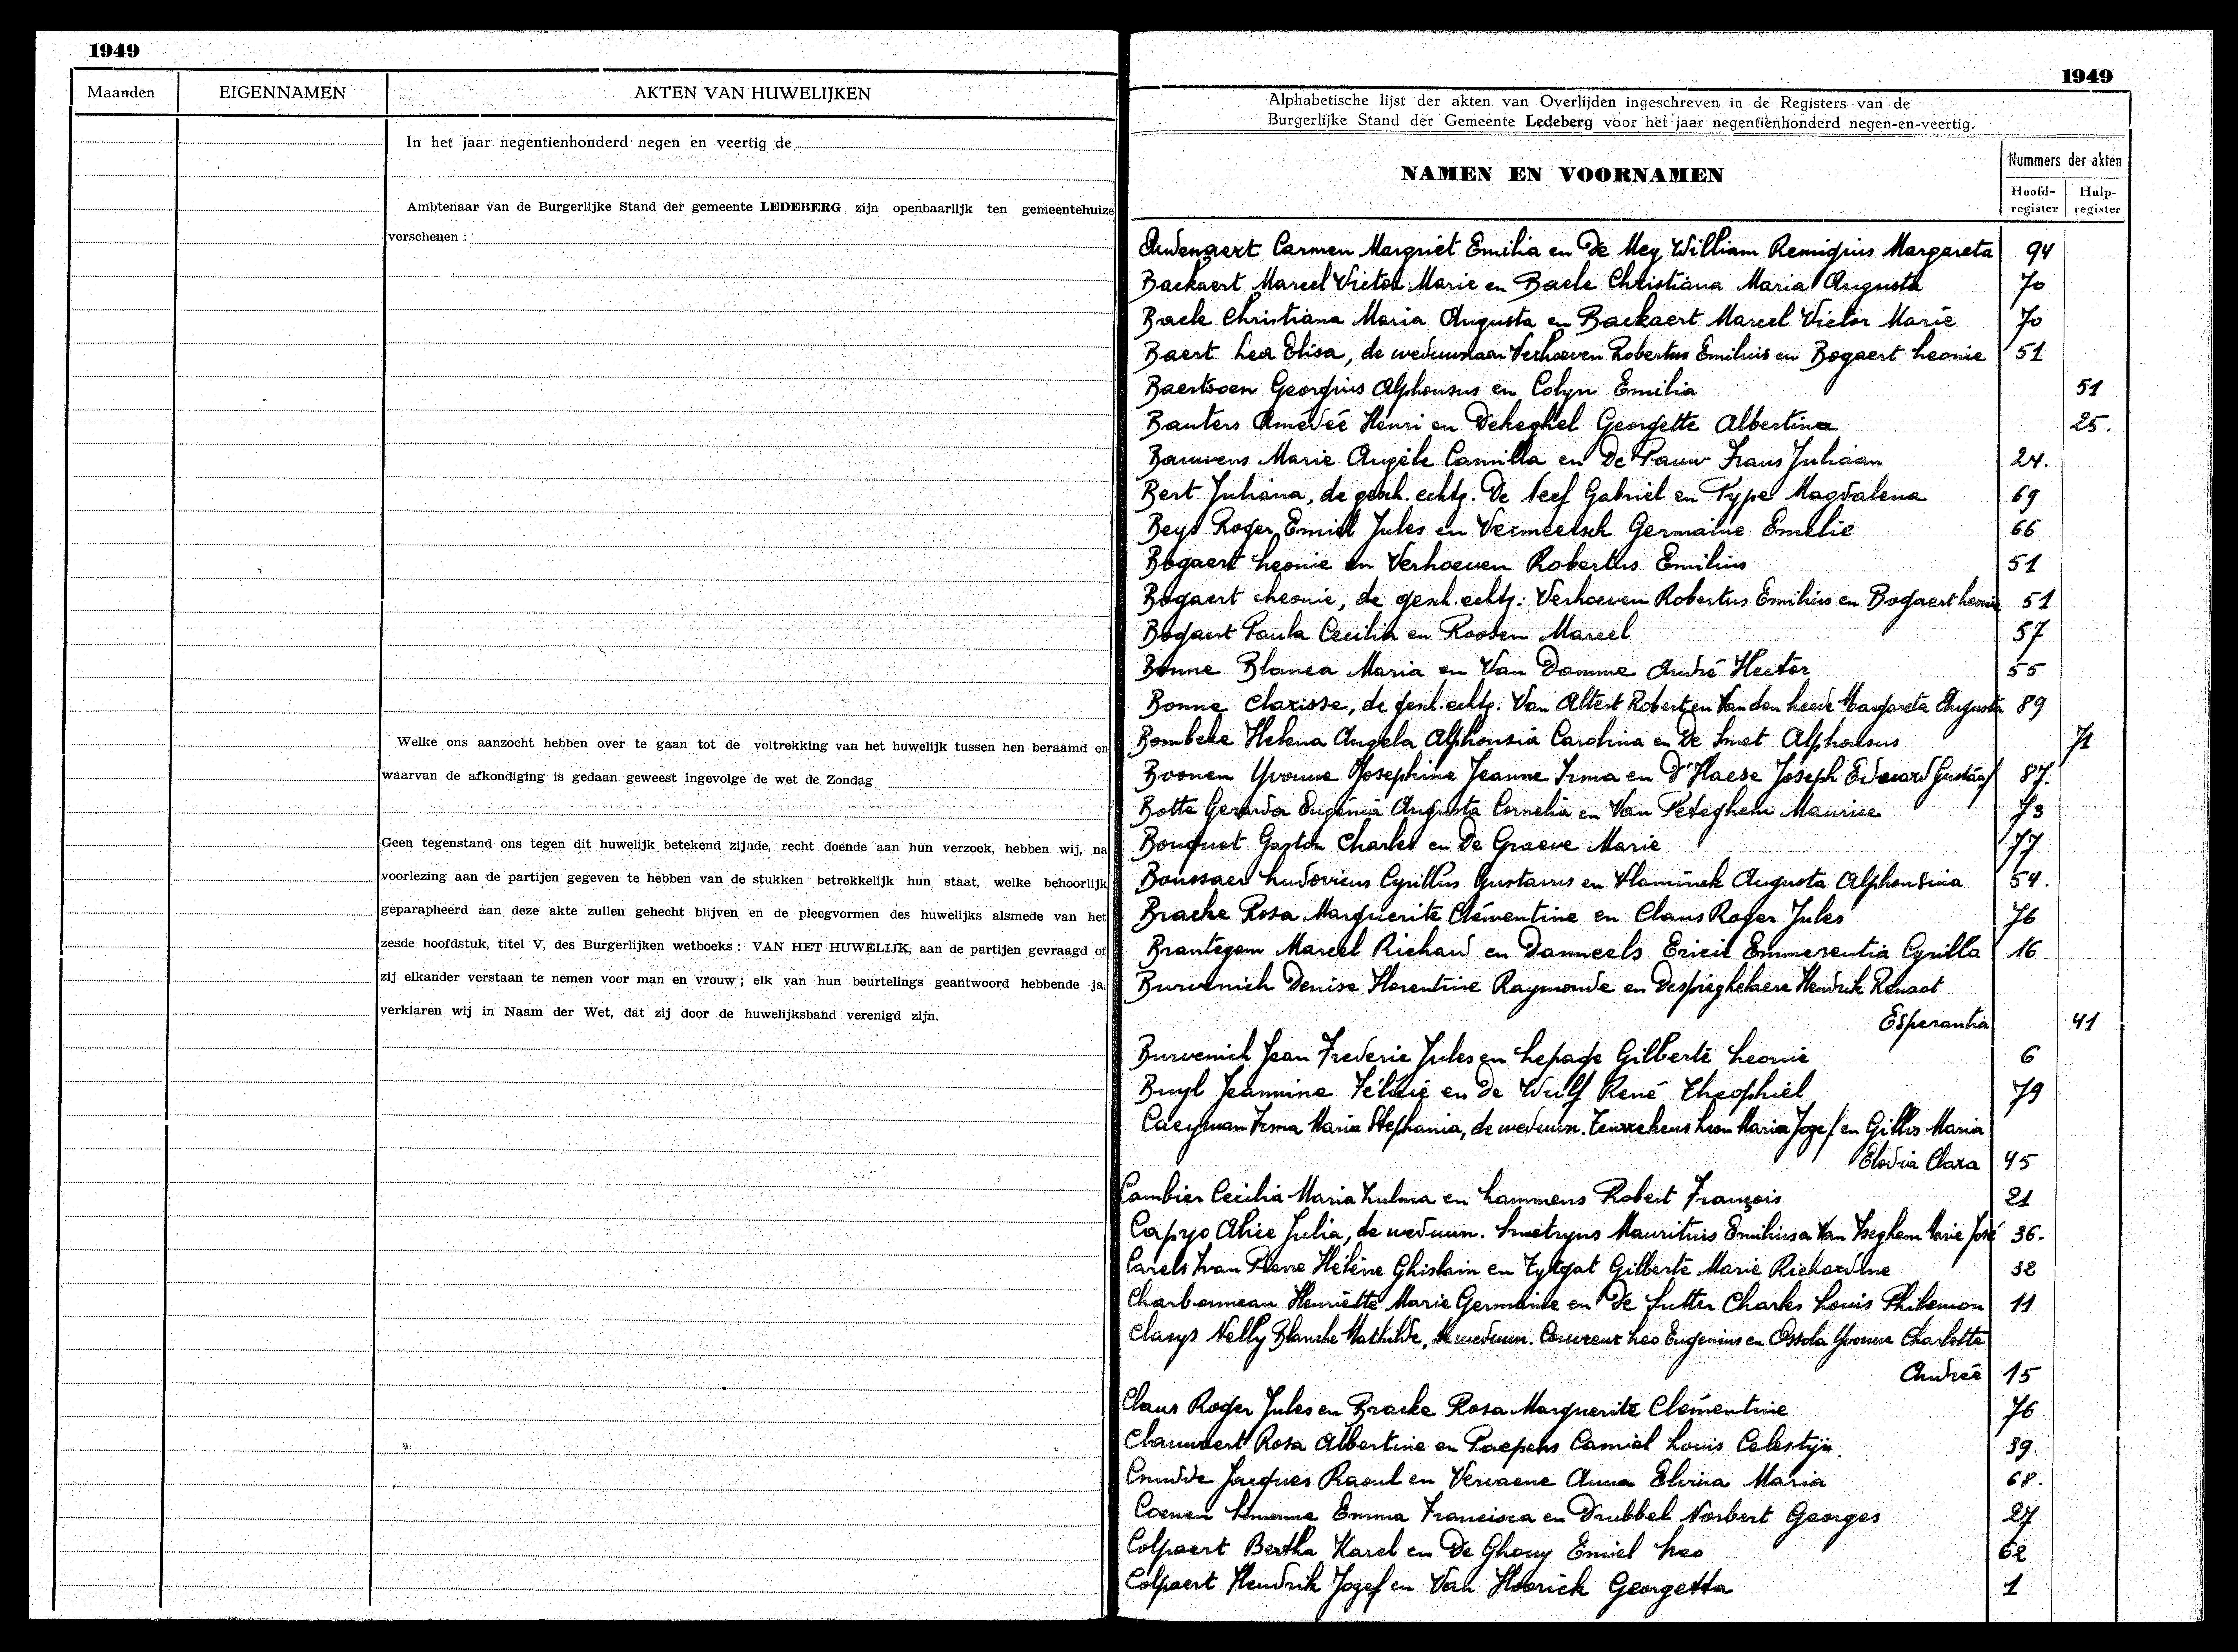 1949
Maanden EIGENNAMEN AKTEN VAN HUWELIJKEN
In het jaar negentienhonderd negen en veertig de
Ambtenaar van de Burgerlijke Stand der gemeente LEDEBERG zijn openbaarlijk ten gemeentehuize
verschenen :
Welke ons aanzocht hebben over te gaan tot de voltrekking van het huwelijk tussen hen beraamd en
waarvan de afkondiging is gedaan geweest ingevolge de wet de Zondag
Geen tegenstand ons tegen dit huwelijk betekend zijnde, recht doende aan hun verzoek, hebben wij, na
voorlezing aan de partijen gegeven te hebben van de stukken betrekkelijk hun staat, welke behoorlijk
geparapheerd aan deze akte zullen gehecht blijven en de pleegvormen des huwelijks alsmede van het
zesde hoofdstuk, titel V, des Burgerlijken wetboeks : VAN HET HUWELIJK, aan de partijen gevraagd of
zij elkander verstaan te nemen voor man en vrouw ; elk van hun beurtelings geantwoord hebbende ja,
verklaren wij in Naam der Wet, dat zij door de huwelijksband verenigd zijn.
1949
Alphabetische lijst der akten van Overlijden ingeschreven in de Registers van de
Burgerlijke Stand der Gemeente Ledeberg voor het jaar negentienhonderd negen-en-veertig.
NAMEN EN VOORNAMEN
Nummers der akten
Hoofd-register Hulp-register
Audenaert Carmen Margriet Emilia en De Mey William Remigius Margareta 94
Backaert Marcel Victor Marie en Baele Christiana Maria Augusta 70
Baele Christiana Maria Augusta en Backaert Marcel Victor Marie 70
Baert Lea Elisa, de weduwnaar Verhoeven Robertus Emilius en Bogaert Leonie 51
Baertsoen Georgius Alphonsus en Colyn Emilia 51
Bauters Amédée Henri en Dekeghel Georgette Albertina 25.
Bauwens Marie Angèle Camilla en De Pauw Frans Juliaan 24.
Bert Juliana, de gesch. echtg. De Neef Gabriel en Type Magdalena 69
Beys Roger Emiel Jules en Vermeetsch Germaine Emelie 66
Bogaert Leonie en Verhoeven Robertus Emilius 51
Bogaert Leonie, de gesch. echtg. : Verhoeven Robertus Emilius en Bogaert Leonie 51
Bogaert Paula Cecilia en Roosen Marcel 57
Bonne Blanca Maria en Van Damme André Hector 55
Bonne Clarisse, de gesch. echtg. Van Altert Robert en Van den heede Margareta Augusta 89
Bombeke Helena Angela Alphonsia Carolina en De Smet Alphonsus 71
Boonen Yvonne Josephine Jeanne Irma en D'Haese Joseph Edward Gustaaf 87.
Botte Gerarda Eugenia Augusta Cornelia en Van Peteghem Maurice 73
Bouquet Gaston Charles en De Graeve Marie 77
Boussaer Ludovicus Cyrillus Gustavus en Vlaminck Augusta Alphonsina 54.
Bracke Rosa Marguerite Clémentine en Claus Roger Jules 76
Brantegem Marcel Richard en Danneels Ericil Emmerentia Cyrilla 16
Burvenich Denise Florentine Raymonde en Despieghelaere Hendrik Renaat
Esperantia 41
Burvenich Jean Frederic Jules en Lepage Gilberte Leonie 6
Buyl Jeannine Félicie en De Wulf René Theophiel 79
Caeyman Irma Maria Stephania, de weduwn. Teurrekens Leon Maria Jozef en Gillis Maria
Elodia Clara 45
Cambier Cecilia Maria Zulma en Lammens Robert François 21
Capyo Alice Julia, de weduwn. Smetryns Mauritius Emilius en Van Iseghem Marie José 36.
Carels Ivan Pierre Hélène Ghislain en Tytgat Gilberte Marie Richardine 32
Charbonneau Henriëtte Marie Germaine en De Sutter Charles Louis Philemon 11
Claeys Nelly Blanche Mathilde, de weduwn. Couvreur Leo Eugenius en Ossola Yvonne Charlotte
Andrée 15
Claus Roger Jules en Bracke Rosa Marguerite Clémentine 76
Rosa Albertine en Paepens Camiel Louis Celestijn. 39.
Cnudde Jacques Raoul en Vervaene Anna Elvira Maria 68.
Coenen Simonne Emma Francisca en Drubbel Norbert Georges 27
Colpaert Bertha Karel en De Ghouy Emiel Leo 62
Colpaert Hendrik Jozef en Van Hoorick Georgetta 1